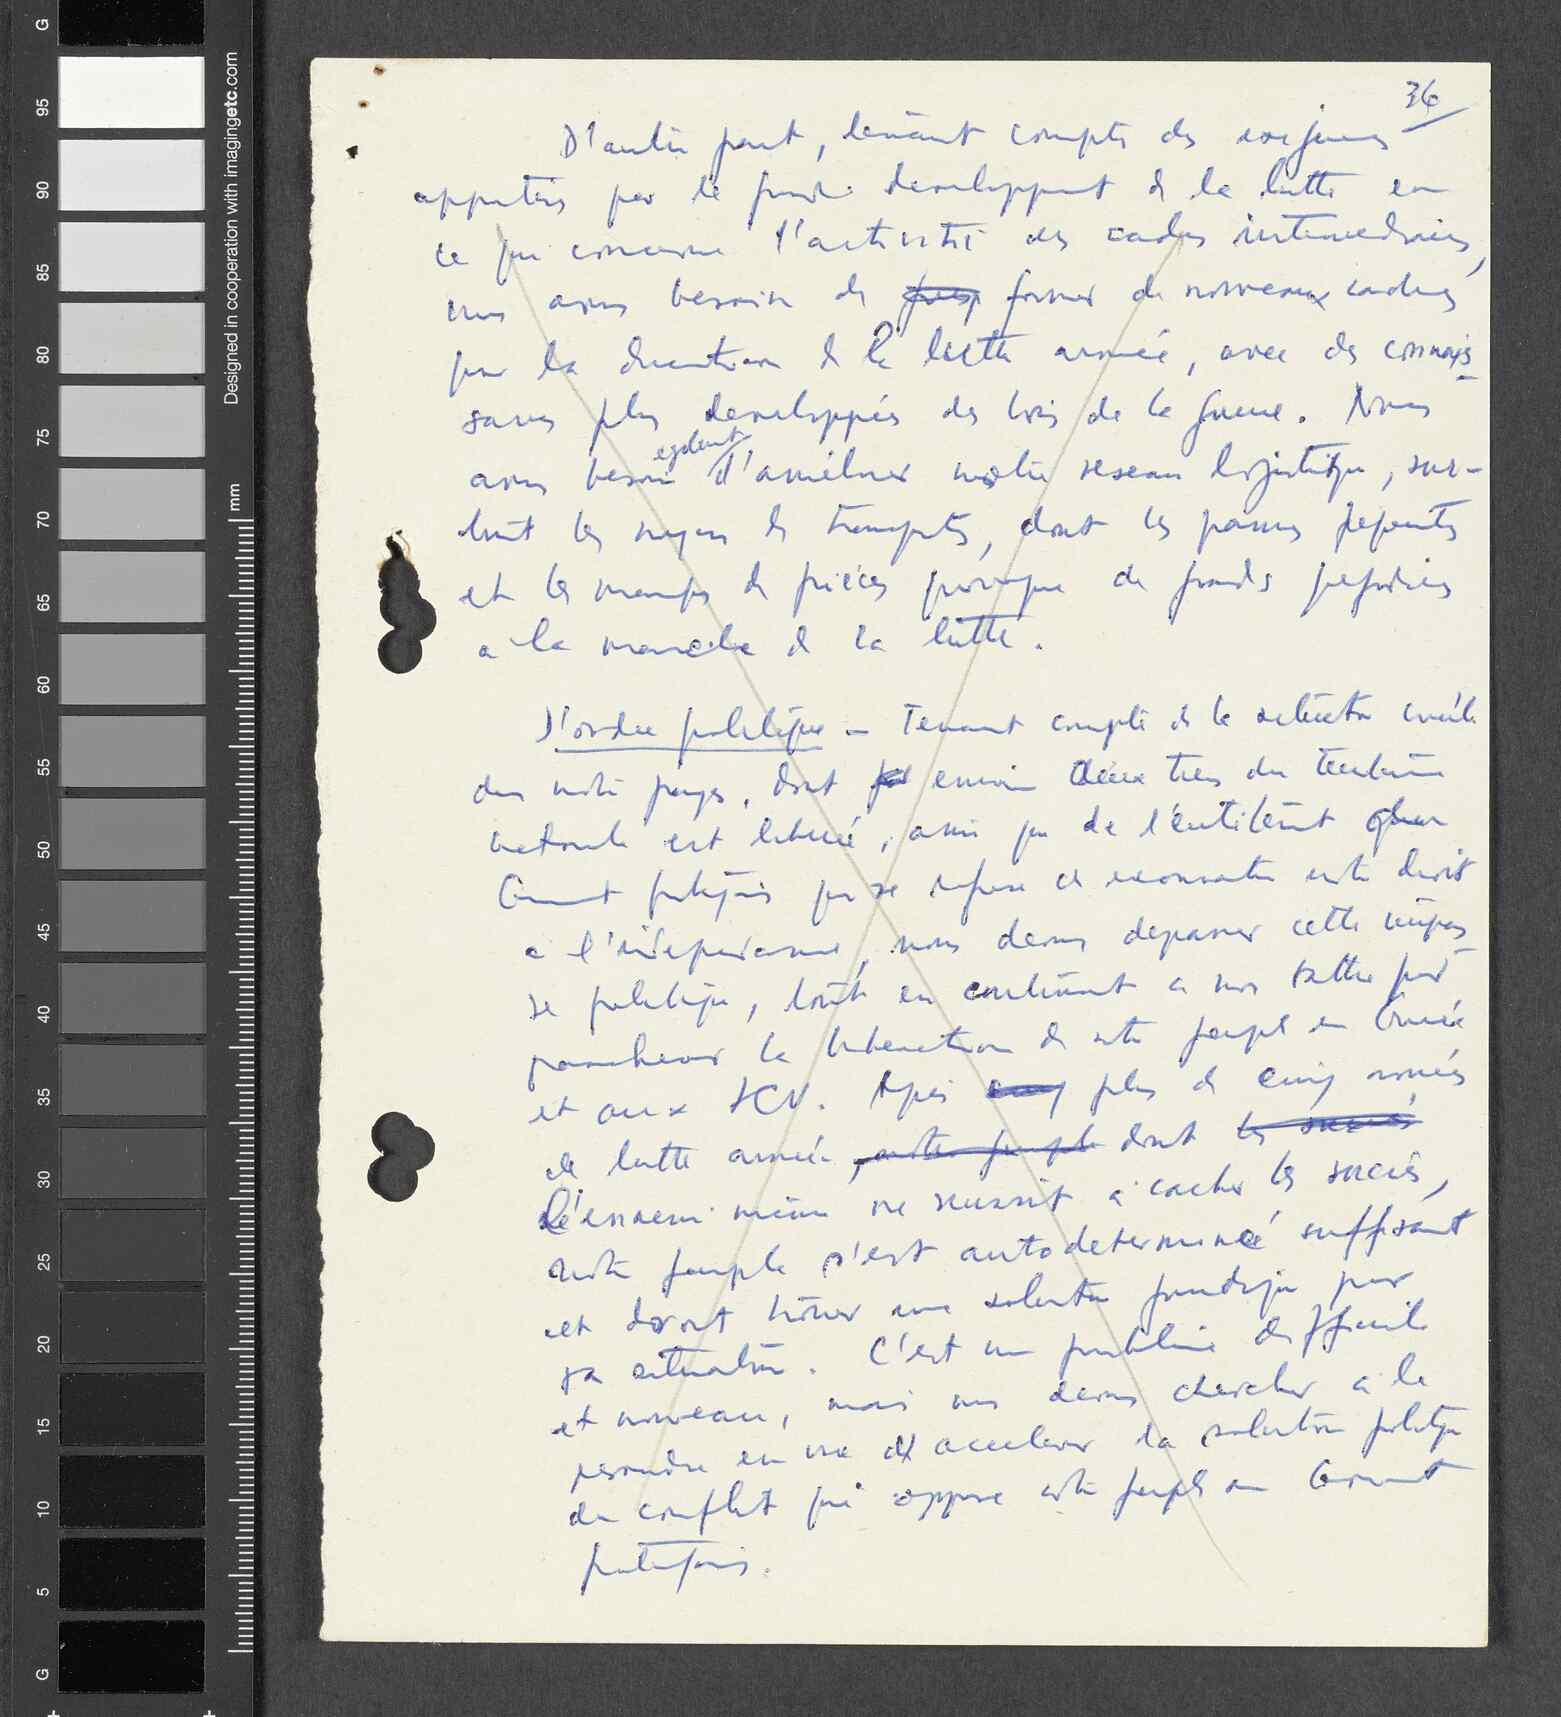 G
95
90
85
80
75
70
65
60
55
50
45
40
35
30
25
20
15
10
5
G
Designed in cooperation with imagingetc.com
mm
36
D'autre part, tenant compte des exigences
apportées par le grand développement de la lutte en
ce qui concerne l'activité des cadres intermédiaires,
nous avons besoin de former de nouveaux cadres
pour la direction de la lutte armée, avec des connais
sances plus developpées des lois de la guerre. Nous
avons besoin egalement d'améliorer notre reseau logistique, sur-
tout les moyens de transports, dont les pannes
et le manque de pièces provoque de grands préjudices
a la marche de la lutte.
D'ordre politique - Tenant compte de la situation
de notre pays, dont environ deux tiers du territoire
national est libéré, ainsi que de l'entêtement du
Gouvernement portugais qui se refuse de reconnaitre notre droit
a l'independance, nous devons depasser cette impas
se politique, tout en continuant a nous battre pour
parachever la liberation de notre peuple en Guinée
et aux ICV. Après plus de cinq années
de lutte armée, notre peuple dont les succès
l'ennemi même ne reussit à cacher les succès,
notre peuple s'est autodeterminé suffisamment
et doit trouver une solution juridique pour
sa situation. C'est un problème difficile
et nouveau, mais nous devons chercher à le
resoudre en vue d'accelerer la solution politique
du conflit qui oppose notre peuple au Gouvernement
portugais.